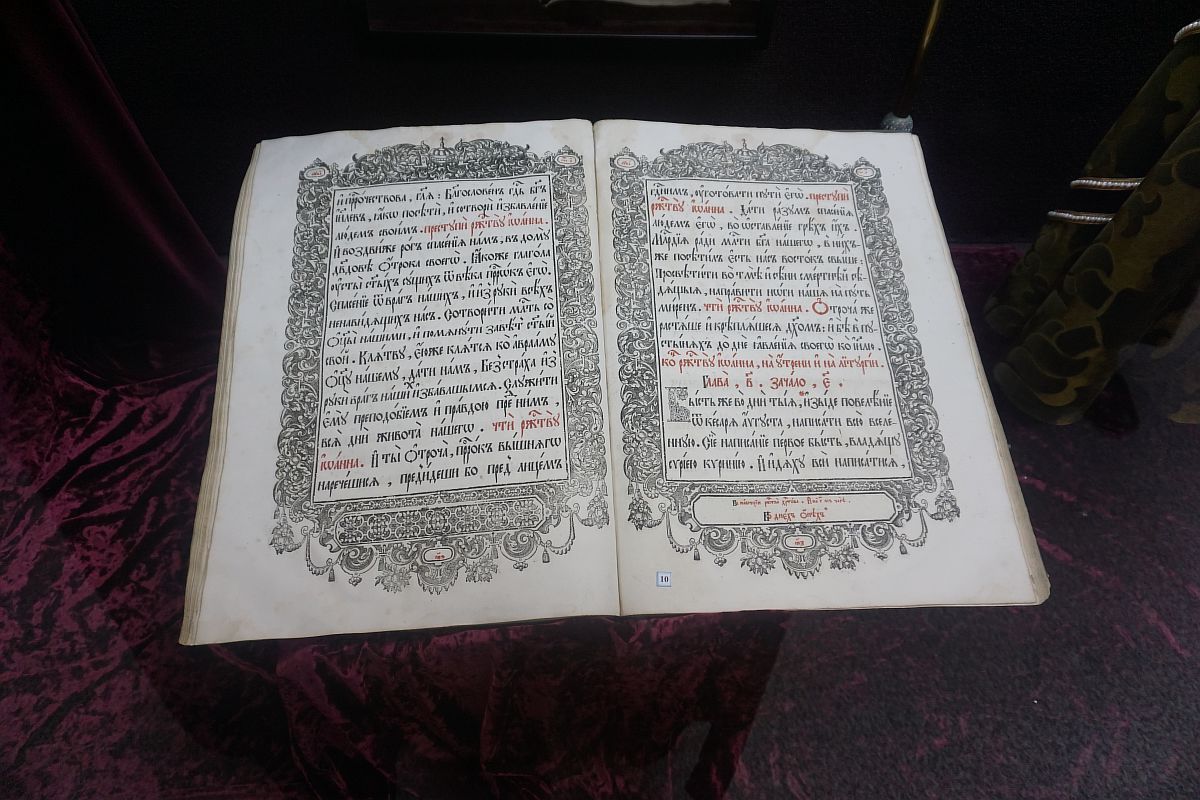 и҆ прⷪ҇рочествова, гл҃ѧ: Бл҃гослове́нъ гдⷭ҇ь бг҃ъ
і҆и҃левъ, ꙗ҆́кѡ посѣтѝ, и҆ сотворѝ и҆збавле́нїе
лю́демъ свои̑мъ. престꙋпѝ ржⷭ҇твꙋ̀ і҆ѡа́нна.
И҆ воздви́же ро́гъ спасе́нїѧ на́мъ, въ домꙋ̀
дв҃довѣ Ѻ҆́трока своегѡ̀. Ꙗ҆́коже глаго́ла
ᲂу҆сты̀ ст҃ы́хъ сꙋ́щихъ ѿ вѣ́ка прⷪ҇рѡ́къ є҆гѡ̀.
Спасе́нїе ѿ вра̑гъ на́шихъ, и҆ и҆зрꙋкѝ всѣ́хъ
ненави́дѧщихъ на́съ. Сотвори́ти млⷭ҇ть со
ѻ҆тцы̑ на́шими, и҆ помѧнꙋ́ти завѣ́тъ ст҃ы́й
сво́й. Клѧ́твꙋ, є҆́юже клѧ́тсѧ ко а҆враа́мꙋ
ѻ҆тцꙋ̀ на́шемꙋ, да́ти на́мъ, Бе́зстраха и҆з̾
рꙋкѝ вра̑гъ на́шихъ и҆зба́вльшымсѧ. Слꙋжи́ти
є҆мꙋ̀ преподо́бїемъ и҆ пра́вдою пред̾ ни́мъ,
всѧ̑ дни̑ живота̀ на́шегѡ. чтѝ ржⷭ҇твꙋ̀
і҆ѡа́нна. И҆ ты̀ Ѻ҆троча̀, прⷪ҇ро́къ вы́шнѧгѡ
нарече́шисѧ, преди́деши бо пред̾ лице́мъ
гдⷭ҇нимъ, ᲂу҆гото́вати пꙋти̑ є҆гѡ̀. престꙋпѝ
ржⷭ҇твꙋ̀ і҆ѡа́нна. Да́ти ра́зꙋмъ спасе́нїѧ
лю́демъ є҆гѡ̀, во ѡ҆ставле́нїе грѣ̑хъ и҆́хъ.
Милосе́рдїѧ ра́ди млⷭ҇ти бг҃а на́шегѡ, в них̾
же посѣти́лъ є҆́сть на́съ восто́къ свы́ше:
Просвѣти́ти во тмѣ̀ и҆ сѣ́ни сме́ртнѣй сѣ
дѧ́щыѧ, напра́вити но́ги на́шѧ на пꙋ́ть
ми́ренъ. чтѝ ржⷭ҇твꙋ̀ і҆ѡа́нна. Ѻ҆троча́ же
растѧ́ше и҆ крѣплѧ́шесѧ дх҃омъ: и҆ бѣ̀ в пꙋ
сты́нѧхъ до днѐ ꙗ҆вле́нїѧ своегѡ̀ ко і҆и҃лю.
ко ржⷭ҇твꙋ̀ і҆ѡа́нна, на ᲂу҆́трени и҆ на лїтꙋргі́и.
Глава̀, в҃. зача́ло, є҃.
Бы́сть же во дни̑ ты̑ѧ, и҆зы́де повелѣ́нїе
ѿ ке́сарѧ а҆́ѵгꙋста, написа́ти всю̀ вселе́н
нꙋю. Сїѐ написа́нїе пе́рвое бы́сть, владѧ́щꙋ
сѷрі́ею кѷри́нїю. И҆ и҆дѧ́хꙋ всѝ написа́тисѧ,
Во дне́хъ ѻ҆́нѣхъ
10